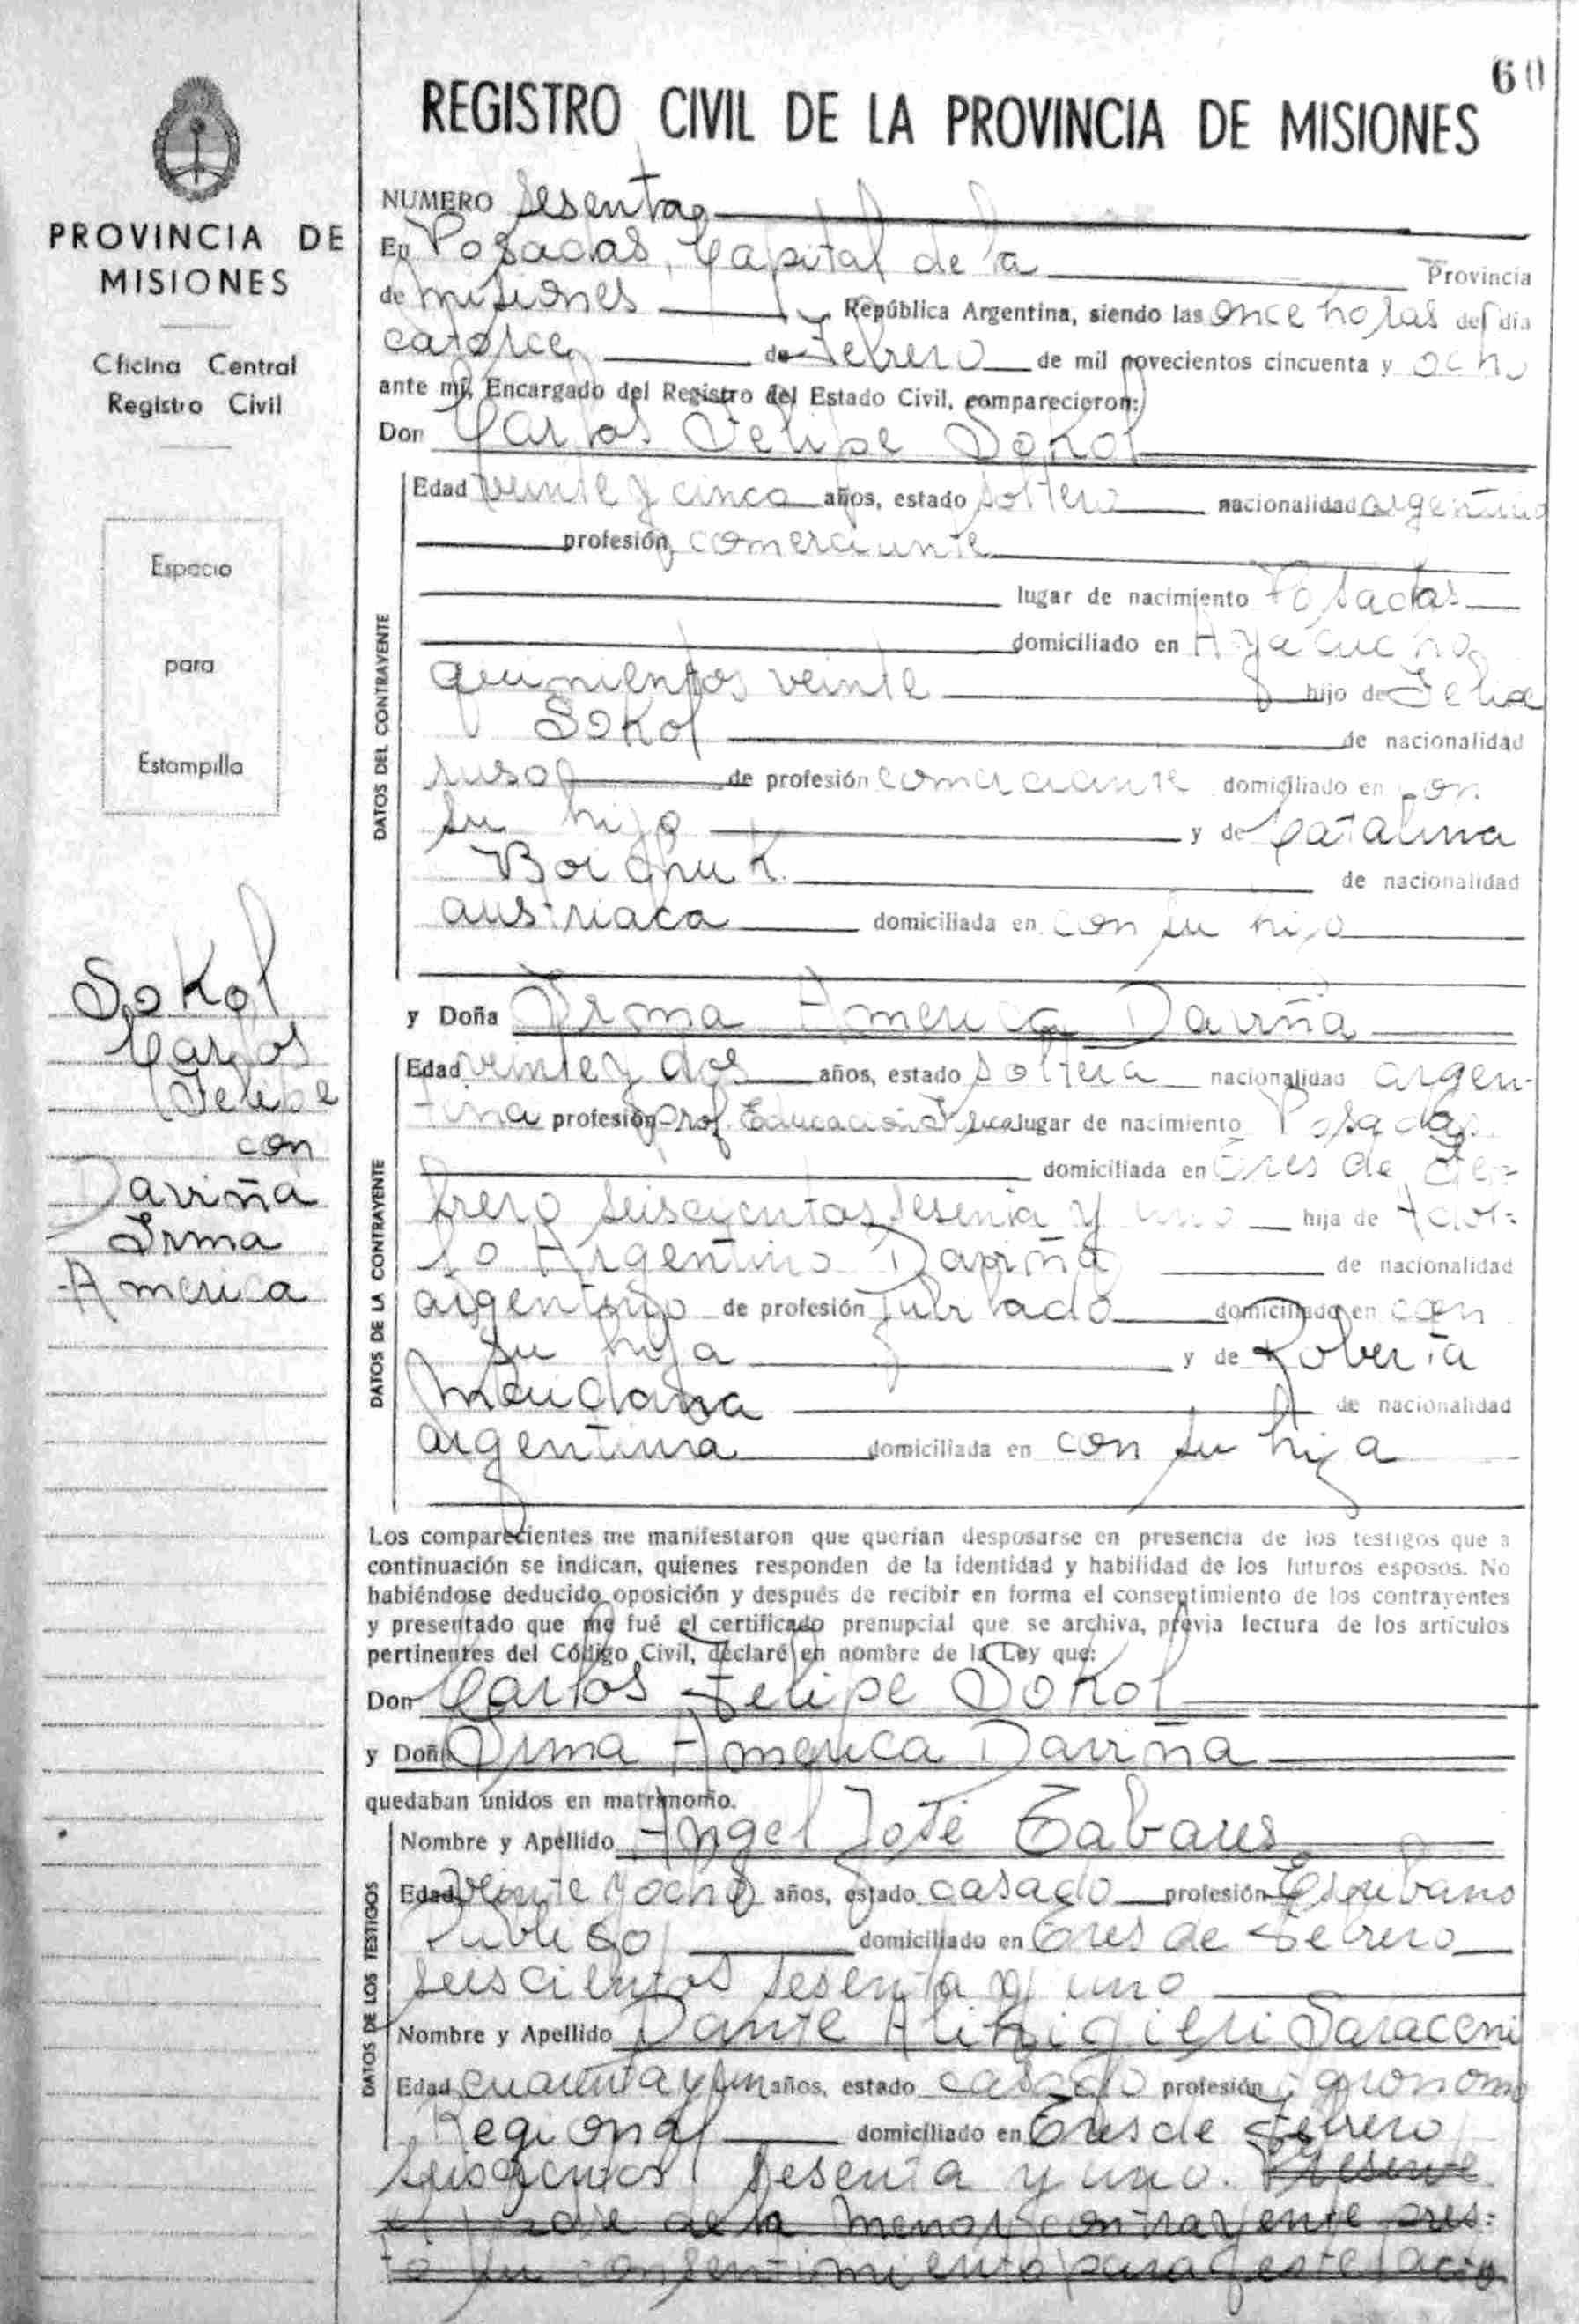 60
REGISTRO CIVIL DE LA PROVINCIA DE MISIONES
PROVINCIA DE
MISIONES
Oficina Central
Registro Civil
Espacio
para
Estampilla
Sokol
Carlos
Felipe
con
Daviña
Irma
America
NUMERO Sesenta
En Posadas, Capital de la Provincia
de Misiones República Argentina, siendo las once horas del día
catorce de Febrero de mil novecientos cincuenta y ocho
ante mí, Encargado del Registro del Estado Civil, comparecieron:
Don Carlos Felipe Sokol
DATOS DEL CONTRAYENTE
Edad veinte y cinco años, estado soltero nacionalidad argentino
profesión comerciante
lugar de nacimiento Posadas
domiciliado en Ayacucho
quinientos veinte hijo de Felipe
Sokol de nacionalidad
ruso de profesión comerciante domiciliado en con
su hijo y de Catalina
Boichuk de nacionalidad
austriaca domiciliada en con su hijo
y Doña Irma America Daviña
DATOS DE LA CONTRAYENTE
Edad veinte y dos años, estado soltera nacionalidad argen-
tina profesión prof. Educación lugar de nacimiento Posadas
domiciliada en Tres de Fe-
brero seiscientos sesenta y uno hija de Adol-
fo Argentino Daviña de nacionalidad
argentino de profesión jubilado domiciliado en con
su hija y de Roberta
Maidana de nacionalidad
argentina domiciliada en con su hija
Los comparecientes me manifestaron que querían desposarse en presencia de los testigos que a
continuación se indican, quienes responden de la identidad y habilidad de los futuros esposos. No
habiéndose deducido oposición y después de recibir en forma el consentimiento de los contrayentes
y presentado que me fué el certificado prenupcial que se archiva, previa lectura de los artículos
pertinentes del Código Civil, declaré en nombre de la Ley que:
Don Carlos Felipe Sokol
y Doña Irma America Daviña
quedaban unidos en matrimonio.
DATOS DE LOS TESTIGOS
Nombre y Apellido Angel José Tabares
Edad veinte y ocho años, estado casado profesión Escribano
Publico domiciliado en Tres de Febrero
seiscientos sesenta y uno
Nombre y Apellido Dante Alihigieri Saraceni
Edad cuarenta y un años, estado casado profesión agronomo
Regional domiciliado en Tres de Febrero
seiscientos sesenta y uno. Presente
el padre de la menor contrayente pres-
tó su consentimiento para este acto